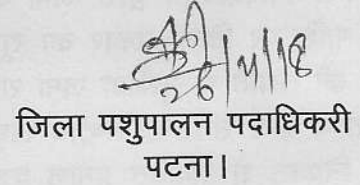 26/4/18
जिला पशुपालन पदाधिकरी
पटना।